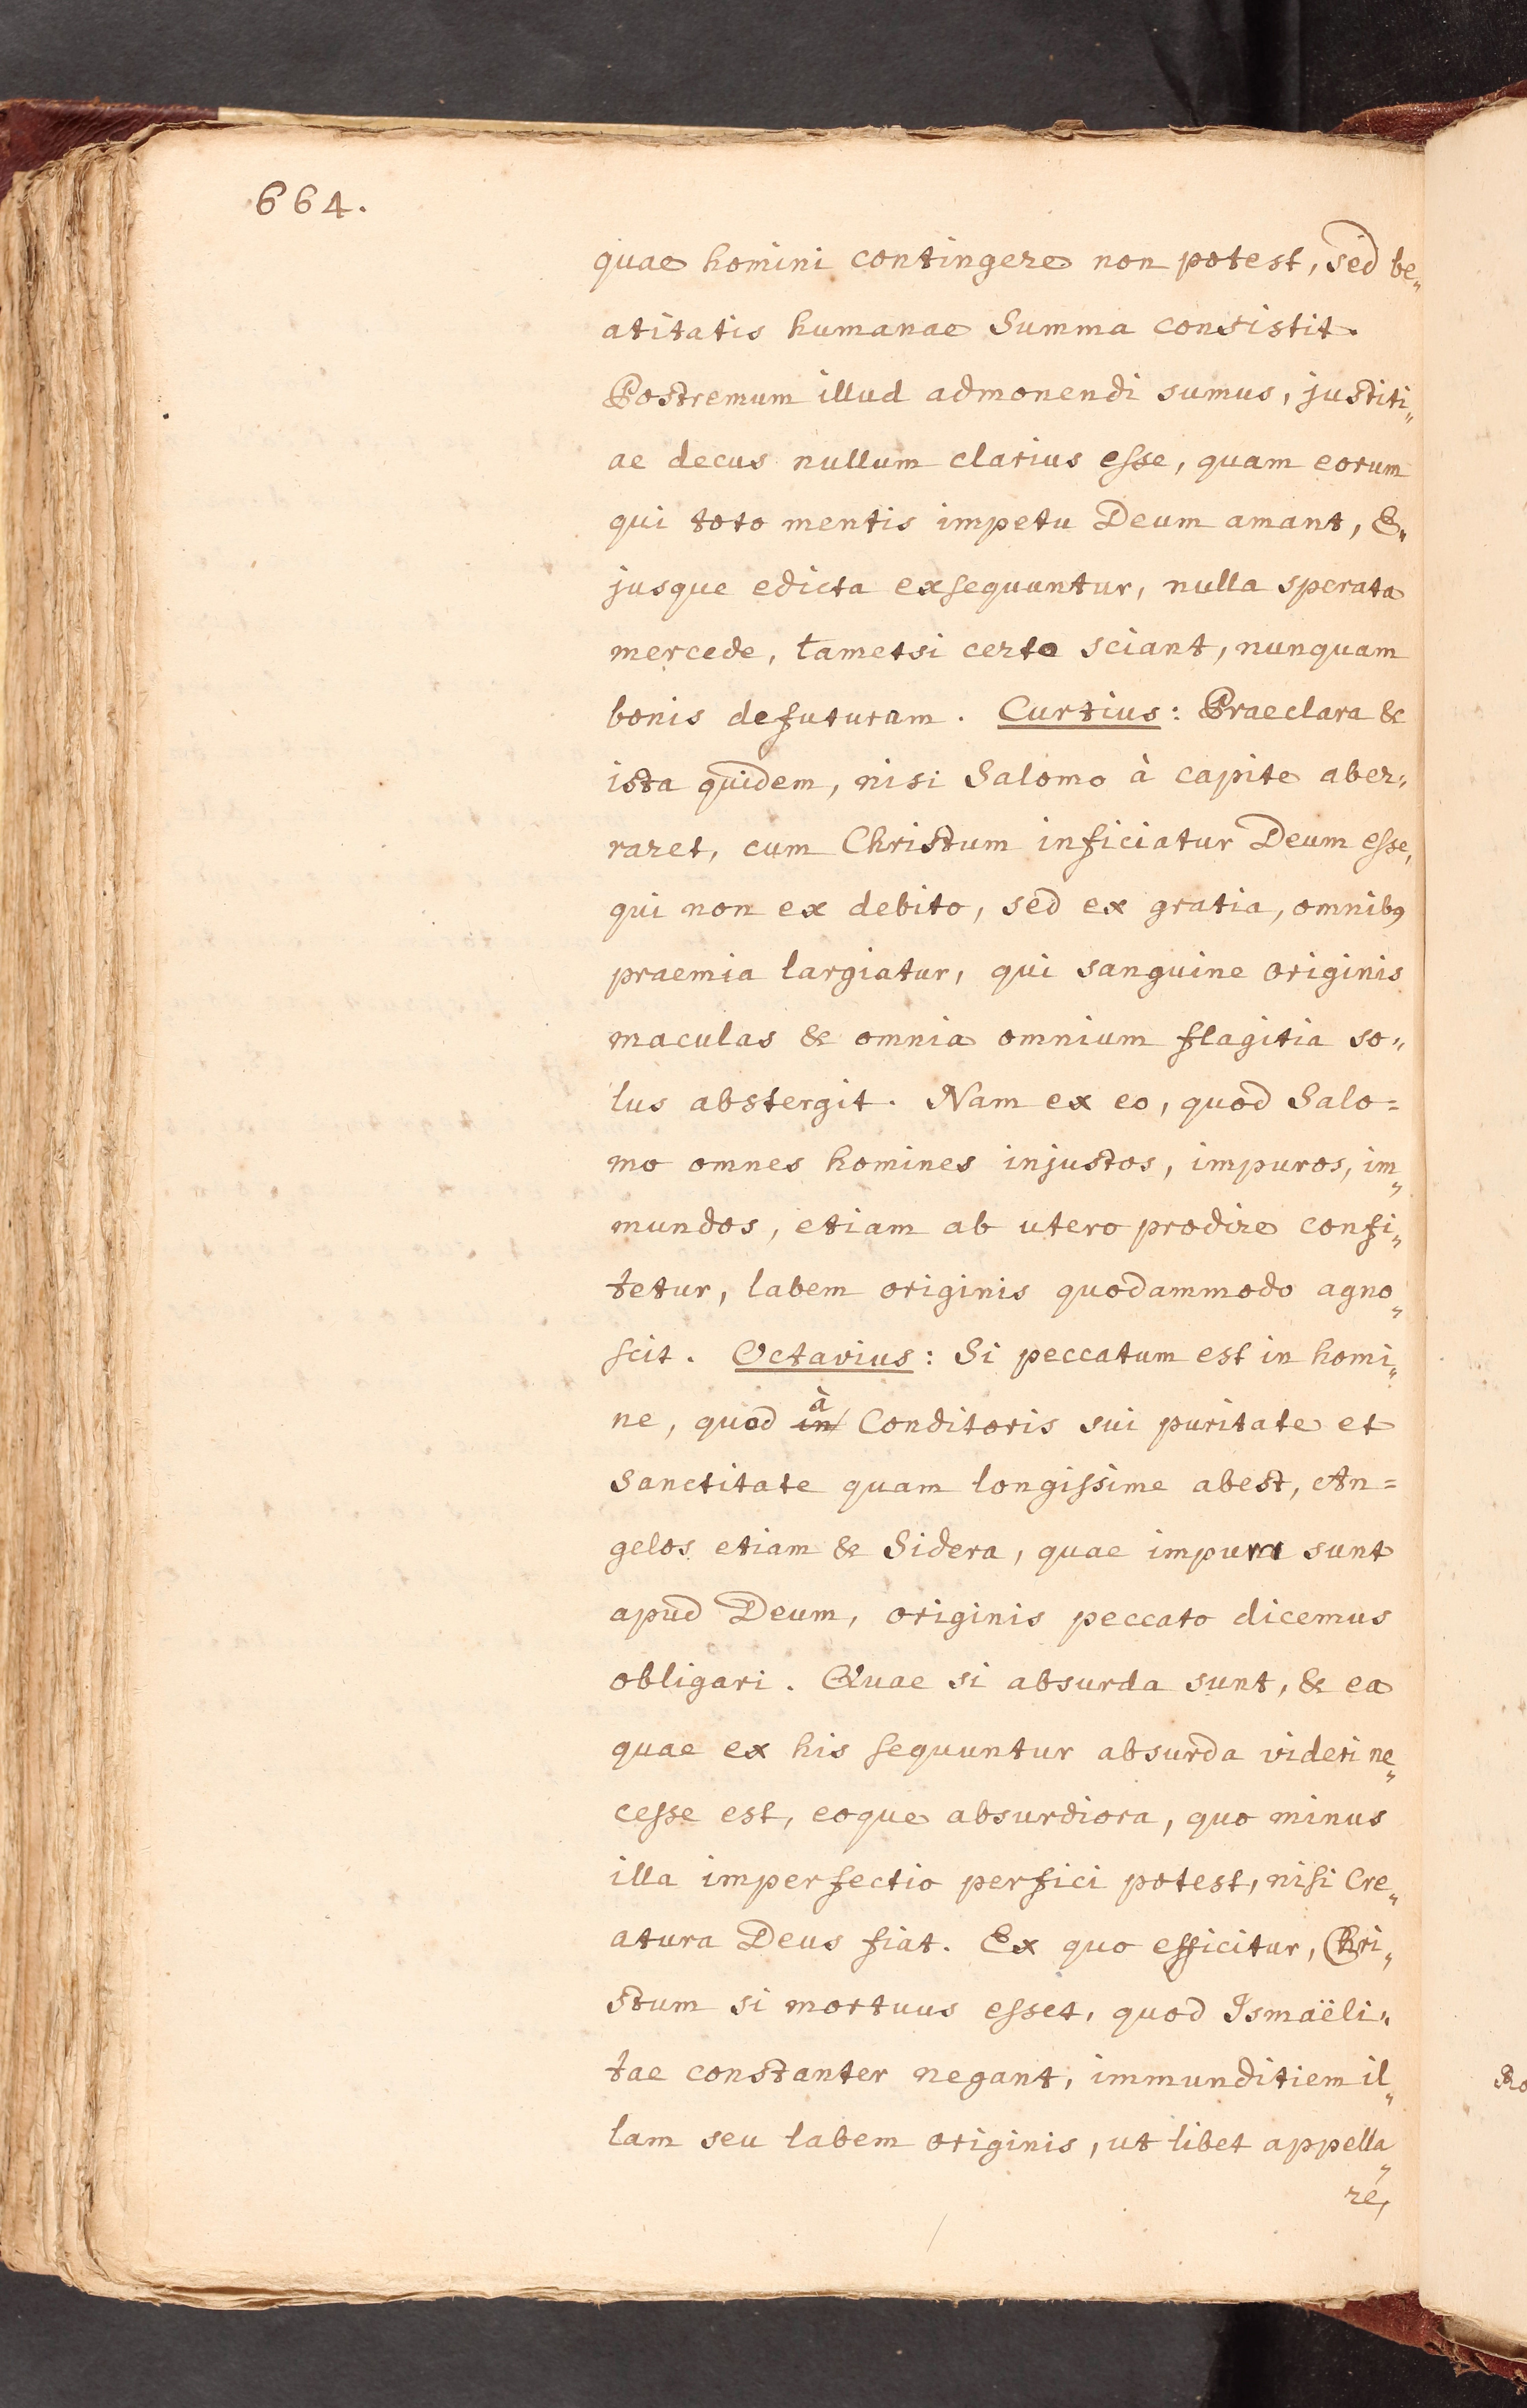 664.
quae homini contingere non potest, sed be„
atitatis humanae Summa consistit.
Postremum illud admonendi sumus, justiti„
ae decus nullum clarius esse, quam eorum
qui toto mentis impetu Deum amant, E„
jusque edicta exsequuntur, nulla sperata
mercede, tametsi certo sciant, nunquam
bonis defuturam. Curtius: Praeclara &
ista quidem, nisi Salomo à capite aber„
raret, cum Christum inficiatur Deum esse,
qui non ex debito, sed ex gratia, omnibꝰ
praemia largiatur, qui sanguine originis
maculas & omnia omnium flagitia so„
lus abstergit. Nam ex eo, quod Salo=
mo omnes homines injustos, impuros, im„
mundos, etiam ab utero prodire confi„
tetur, labem originis quodammodo agno„
scit. Octavius: Si peccatum est in homi„
ne, quod in à Conditoris sui puritate et
Sanctitate quam longissime abest, An=
gelos etiam & Sidera, quae impura sunt
apud Deum, originis peccato dicemus
obligari. Quae si absurda sunt, & ea
quae ex his sequuntur absurda videri ne„
cesse est, eoque absurdiora, quo minus
illa imperfectio perfici potest, nisi Cre„
atura Deus fiat. Ex quo efficitur, Chri„
stum si mortuus esset, quod Ismaëli„
tae constanter negant, immunditiem il„
lam seu labem originis, ut libet appella„
re,